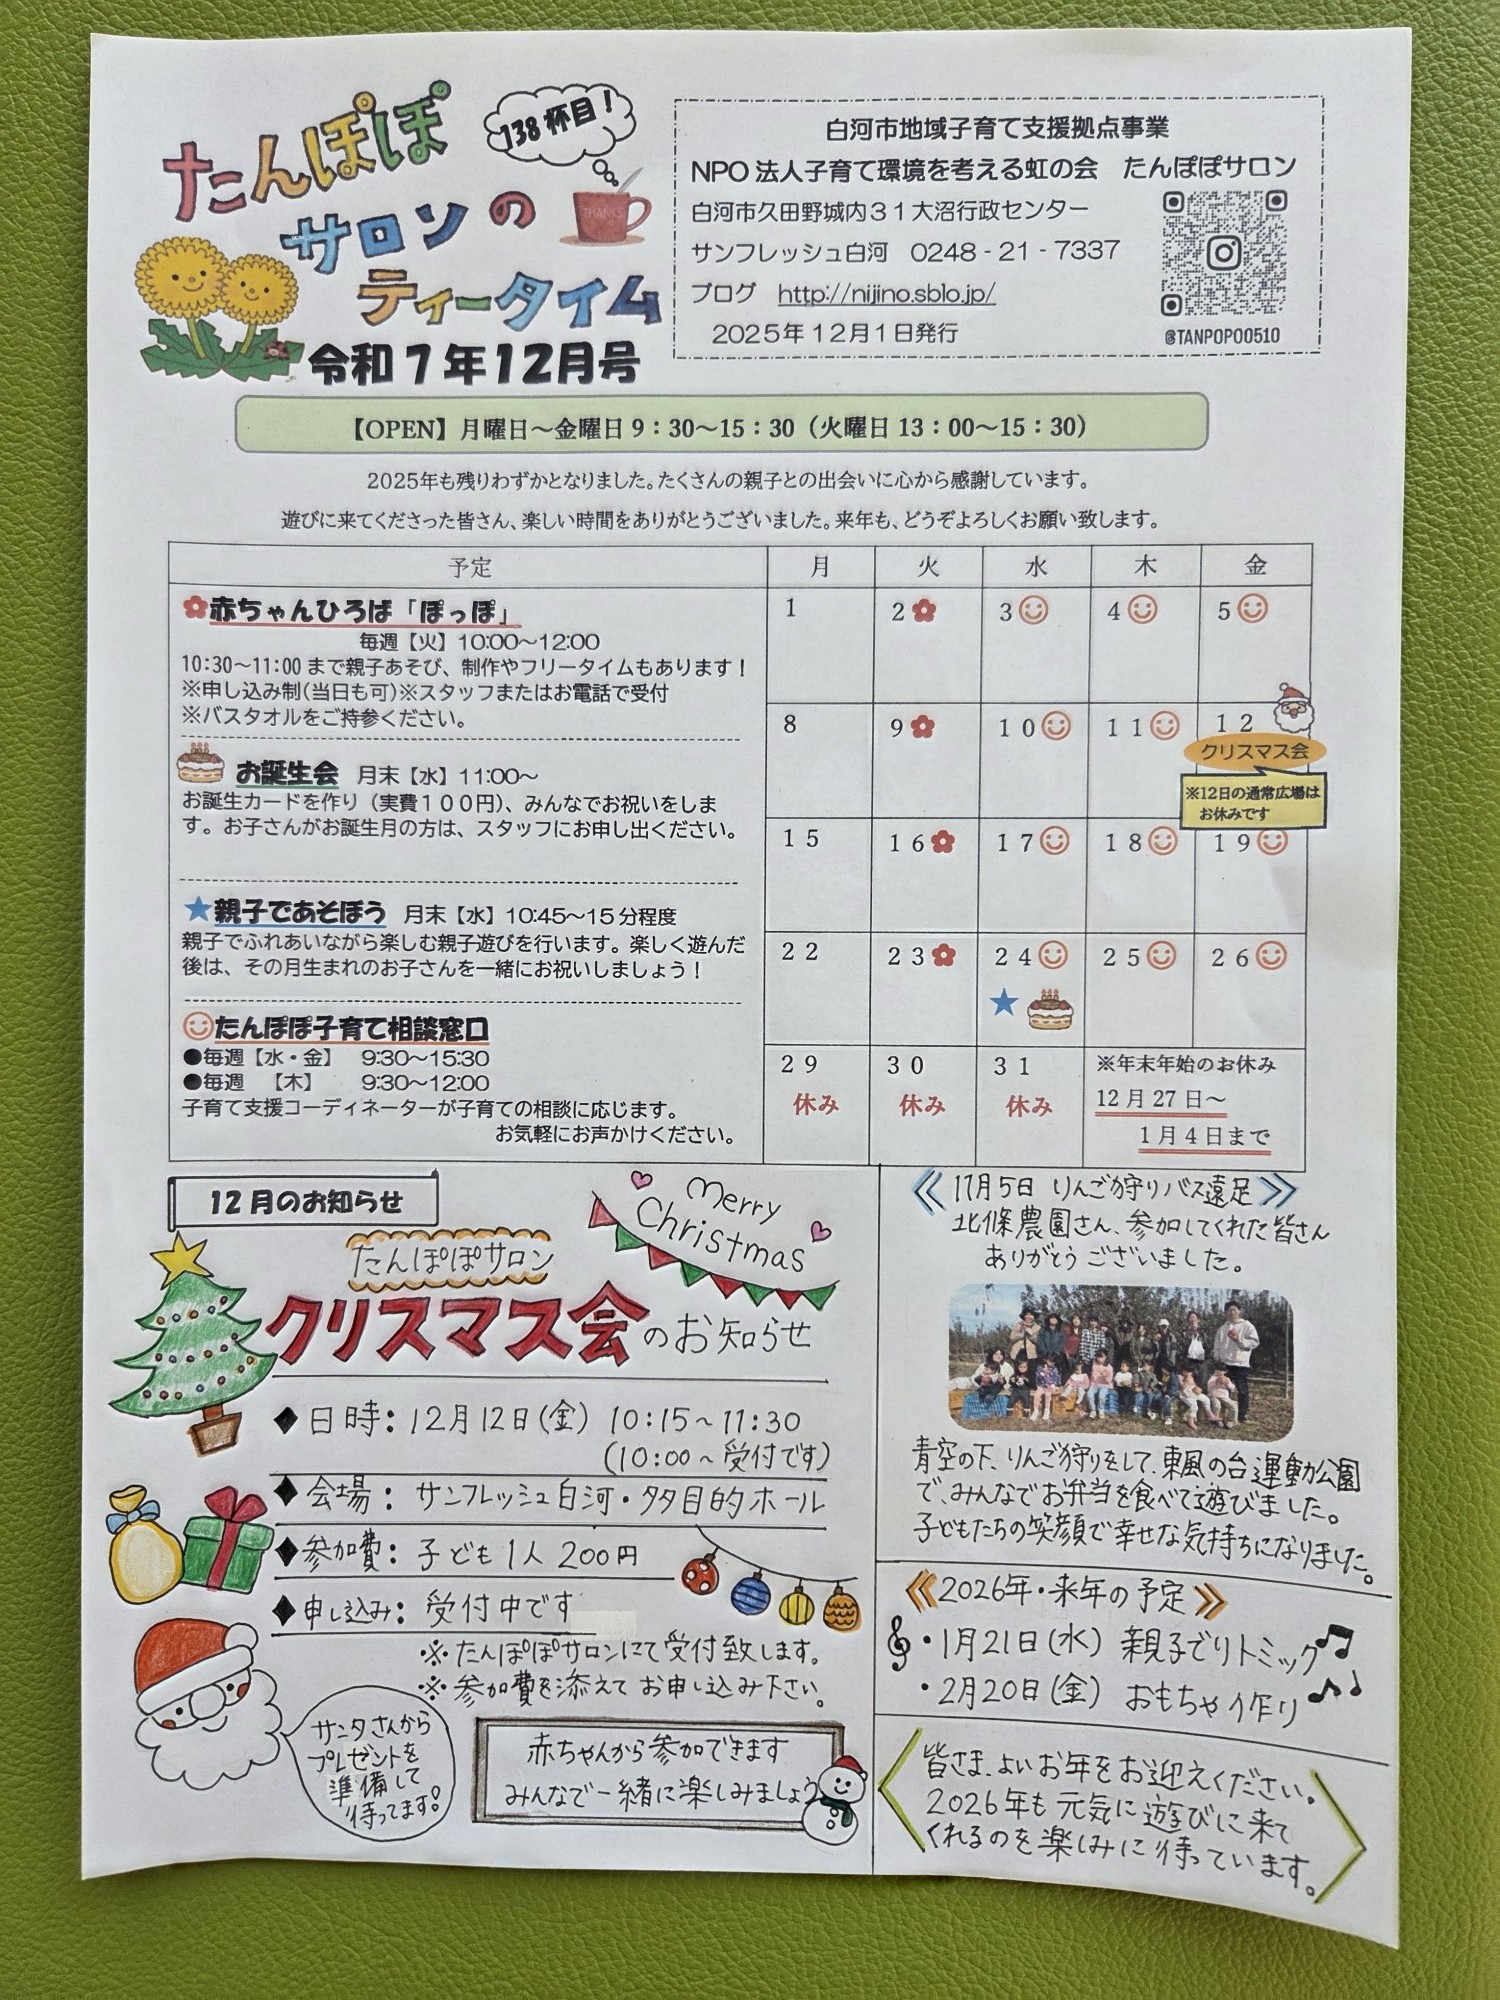 たんぽぽ
サロンの
ティータイム
138杯目！
THANKS
令和７年12月号
白河市地域子育て支援拠点事業
NPO法人子育て環境を考える虹の会　たんぽぽサロン
白河市久田野城内３１大沼行政センター
サンフレッシュ白河　0248-21-7337
ブログ　http://nijino.sblo.jp/
2025年12月1日発行
@TANPOPO0510
【OPEN】月曜日～金曜日 9：30～15：30（火曜日 13：00～15：30）
2025年も残りわずかとなりました。たくさんの親子との出会いに心から感謝しています。
遊びに来てくださった皆さん、楽しい時間をありがとうございました。来年も、どうぞよろしくお願い致します。
予定　月　火　水　木　金
赤ちゃんひろば「ぽっぽ」
毎週【火】10:00～12:00
10:30～11:00まで親子あそび、制作やフリータイムもあります！
※申し込み制(当日も可)※スタッフまたはお電話で受付
※バスタオルをご持参ください。
お誕生会　月末【水】11:00～
お誕生カードを作り（実費１００円）、みんなでお祝いをしま
す。お子さんがお誕生月の方は、スタッフにお申し出ください。
★親子であそぼう　月末【水】10:45～15分程度
親子でふれあいながら楽しむ親子遊びを行います。楽しく遊んだ
後は、その月生まれのお子さんを一緒にお祝いしましょう！
たんぽぽ子育て相談窓口
●毎週【水・金】　9:30～15:30
●毎週　【木】　9:30～12:00
子育て支援コーディネーターが子育ての相談に応じます。
お気軽にお声かけください。
1　2　3　4　5
8　9　10　11　12
クリスマス会
※12日の通常広場は
お休みです
15　16　17　18　19
22　23　24　25　26
★
29　30　31
休み　休み　休み
※年末年始のお休み
12月27日～
1月4日まで
12月のお知らせ
Merry
Christmas
たんぽぽサロン
クリスマス会のお知らせ
◆日時：12月12日(金) 10:15～11:30
(10:00～受付です)
◆会場：サンフレッシュ白河・多目的ホール
◆参加費：子ども1人 200円
◆申し込み：受付中です
※たんぽぽサロンにて受付致します。
※参加費を添えてお申し込み下さい。
サンタさんから
プレゼントを
準備して
待ってます！
赤ちゃんから参加できます
みんなで一緒に楽しみましょう
《11月5日　りんご狩りバス遠足》
北條農園さん、参加してくれた皆さん
ありがとうございました。
青空の下、りんご狩りをして、東風の台運動公園
で、みんなでお弁当を食べて遊びました。
子どもたちの笑顔で幸せな気持ちになりました。
《2026年・来年の予定》
・1月21日(水) 親子でリトミック
・2月20日(金) おもちゃ作り
皆さま、よいお年をお迎えください。
2026年も元気に遊びに来て
くれるのを楽しみに待っています。